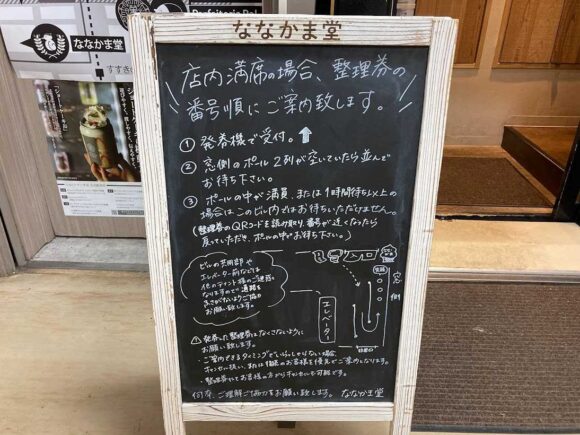 ななかま堂
店内満席の場合、整理券の
番号順にご案内致します。
① 発券機で受付。⬆
② 窓側のポール2列が空いていたら並んで
お待ち下さい。
③ ポールの中が満員、または1時間待ち以上の
場合はこのビル内ではお待ちいただけません。
(整理券のQRコードを読み取り、番号が近くなったら
戻っていただき、ポールの中でお待ち下さい。)
ビルの共用部や
エレベーター前などは
他のテナント様のご迷惑に
なりますので通路を
ふさがないようご協力
お願い致します。
入口
窓側
エレベーター
⚠ 発券した整理券はなくさないように
お願い致します。
・ご案内できるタイミングでいらっしゃらない場合、
キャンセル扱い、または次のお客様を優先でご案内になります。
・整理券にてお客様の方からキャンセルも可能です。
何卒、ご理解ご協力をお願い致します。 ななかま堂
ななかま堂
すすきの